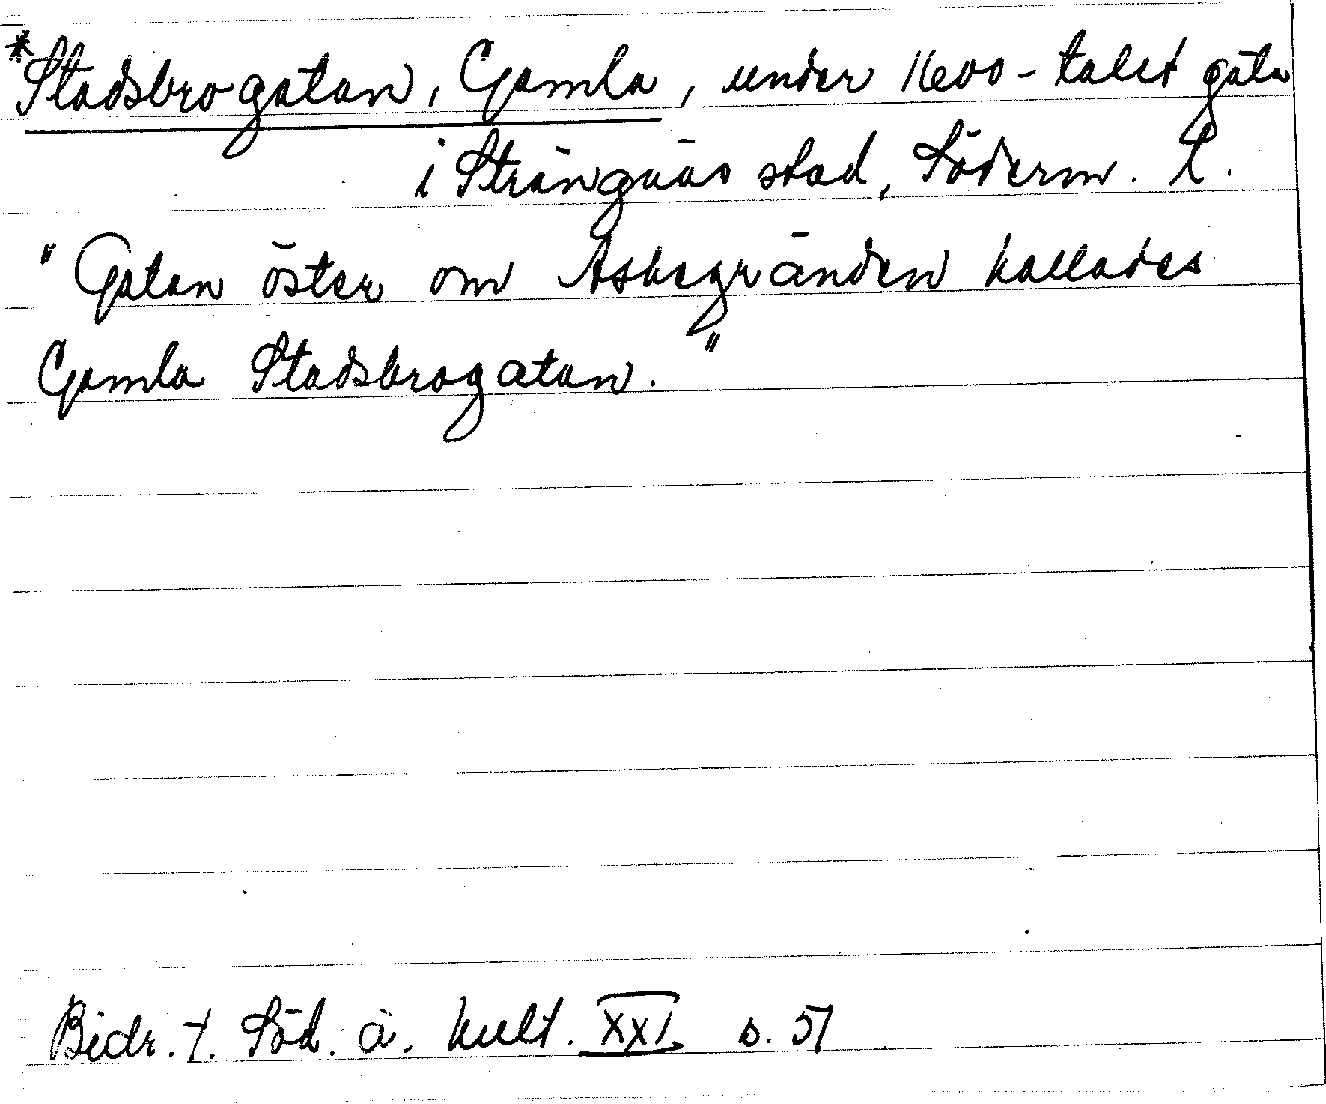 *Stadsbrogatan, Gamla, under 1600-talet gata
i Strängnäs stad, Söderm. L.
"Gatan öster om Askegränden kallades
Gamla Stadsbrogatan."
Bidr. t. Söd. ä. kult. XXI. s. 57